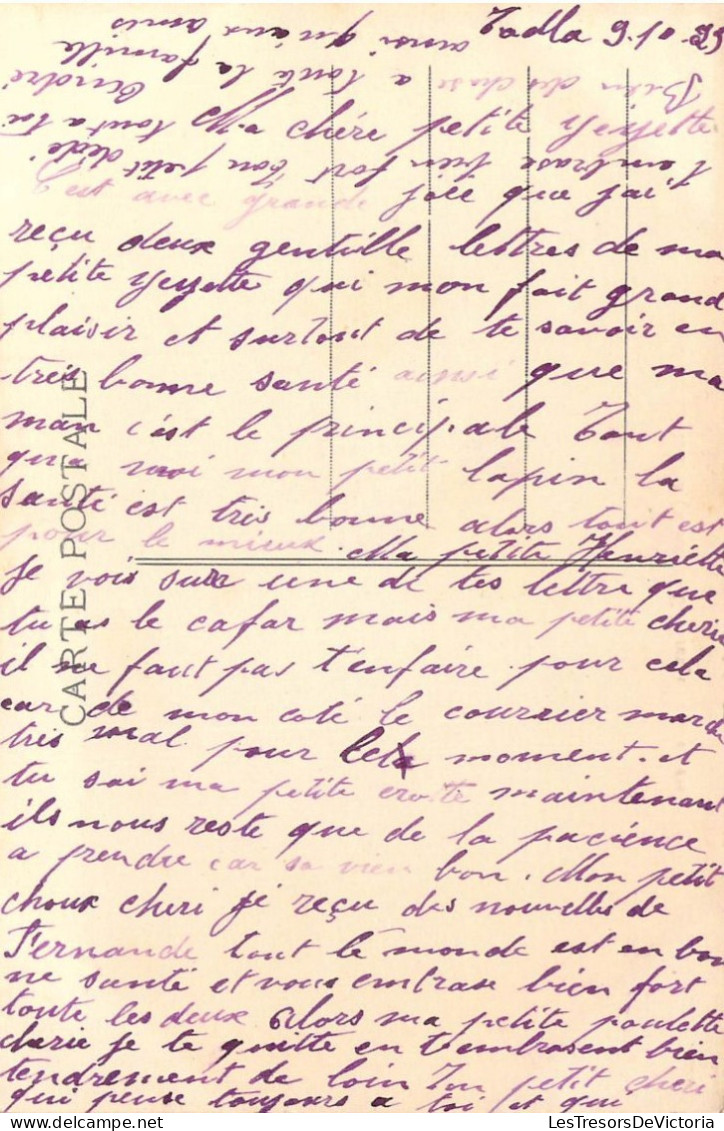 Tadla 9-10-39
Ma chére petite Yeyette
C'est avec grande joie que j'ai
reçu deux gentille lettres de ma
petite Yeyette qui mon fait grand
plaisir et surtout de te savoir en
tres bonne santé ainsi que ma
man c'est le principale Tout
qua moi mon petit lapin la
santé est tres bonne alors tout est
pour le mieux. Ma petite Henriette
Je vois sur une de tes lettre que
tu as le cafar mais ma petite cherie
il ne faut pas t'enfaire pour cela
car de mon coté le courrier marche
tres mal pour le moment. et
tu sai ma petite crotte maintenant
ils nous reste que de la pacience
a prendre car sa vien bon. Mon petit
choux cheri je reçu des nouvelles de
Fernande tout le monde est en bon
ne santé et vous embrase bien fort
toute les deux Alors ma petite poulette
cherie je te quitte en t'embrasent bien
tendrement de loin Ton petit cheri
qui pense toujours a toi et qui
t'embrase bien fort Ton petit dédé
tout a toi
André
Bien des chose a toute la famille
ainsi qu'aux amis
CARTE POSTALE
LesTresorsDeVictoria